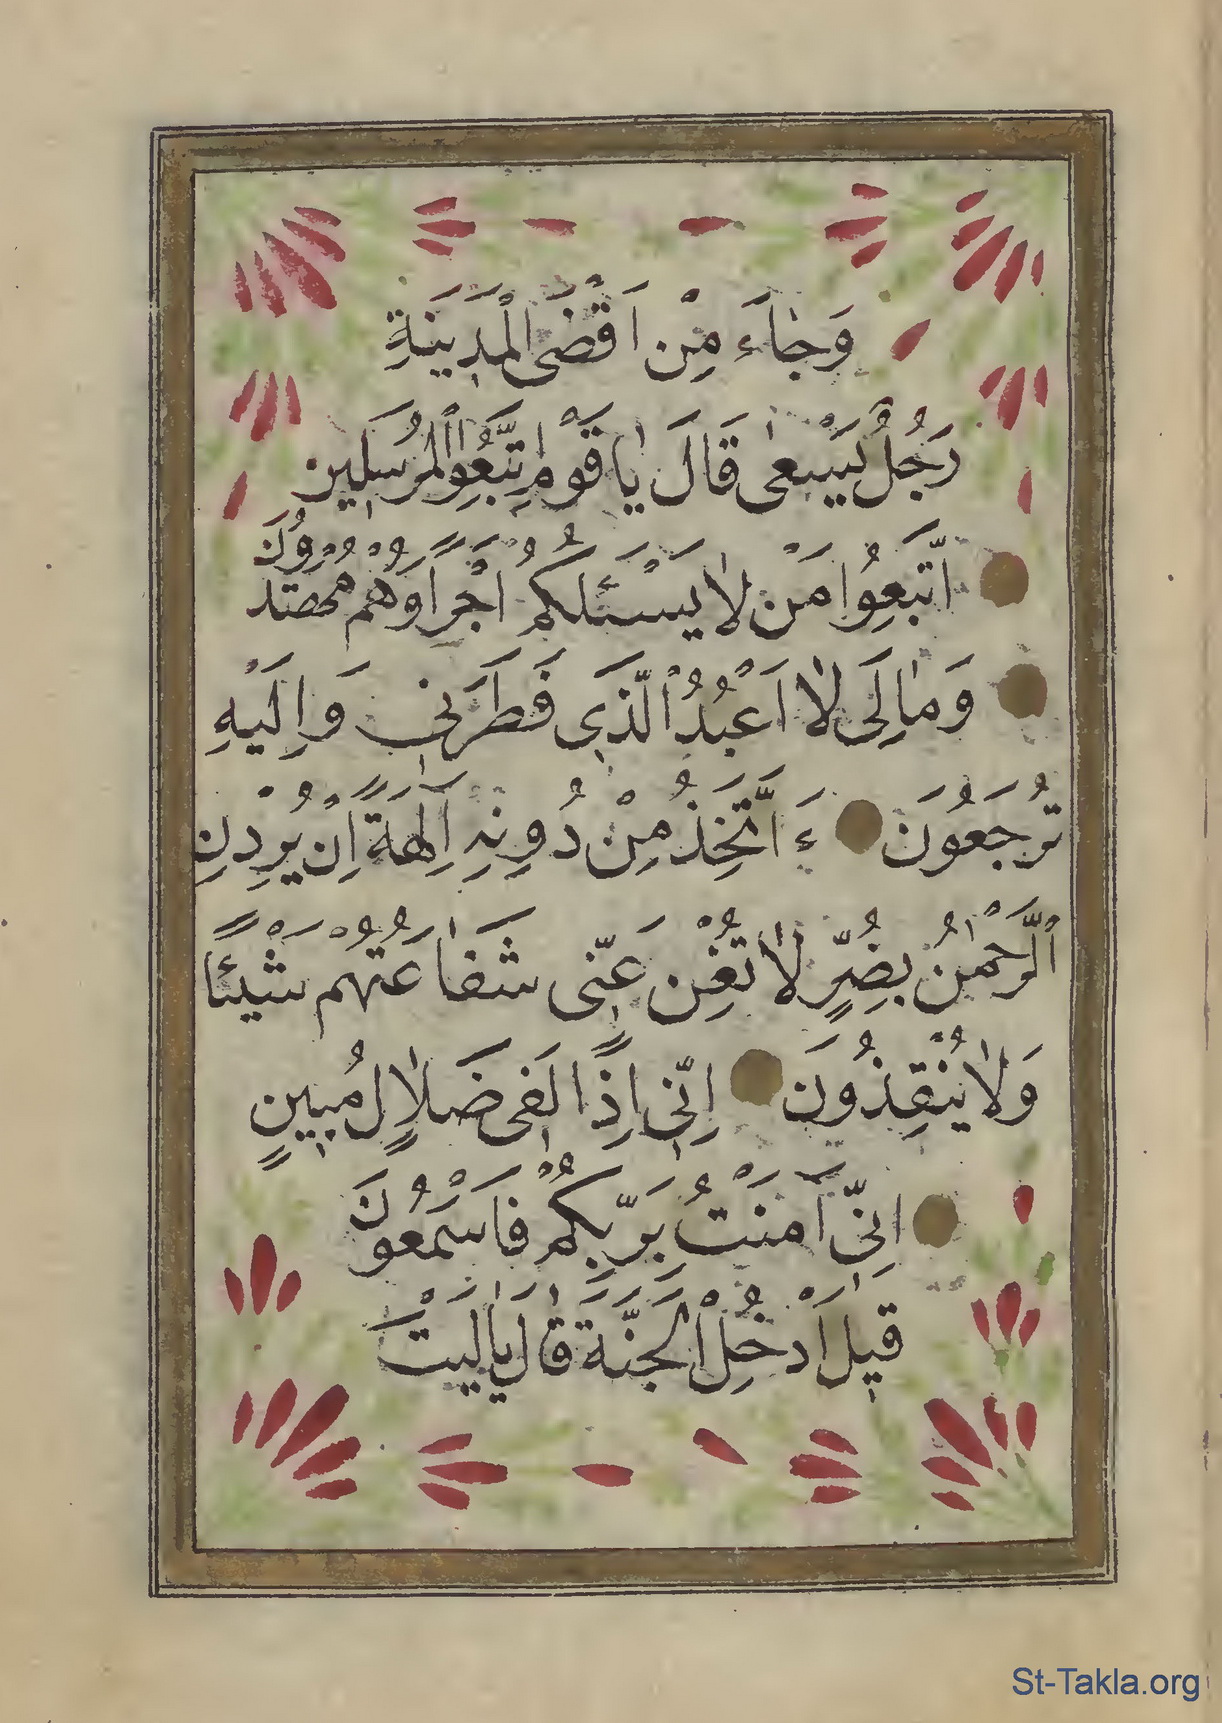 وَجٰاءَ مِنْ اَقْصَى الْمَدٖينَةِ
رَجُلٌ يَسْعٰى قَالَ يٰا قَوْمِ اتَّبِعُوا الْمُرْسَلٖينَ
اتَّبِعُوا مَنْ لٰا يَسْـَٔلُكُمْ اَجْرًا وَهُمْ مُهْتَدُونَ
وَمٰالِىَ لٰا اَعْبُدُ الَّذٖى فَطَرَنٖى وَاِلَيْهِ
تُرْجَعُونَ ءَاَتَّخِذُ مِنْ دُونِهٖ اٰلِهَةً اِنْ يُرِدْنِ
الرَّحْمٰنُ بِضُرٍّ لٰا تُغْنِ عَنّٖى شَفٰاعَتُهُمْ شَيْئًا
وَلٰا يُنْقِذُونَ اِنّٖى اِذًا لَفٖى ضَلٰالٍ مُبٖينٍ
اِنّٖى اٰمَنْتُ بِرَبِّكُمْ فَاسْمَعُونَ
قٖيلَ ادْخُلِ الْجَنَّةَ قٰالَ يٰا لَيْتَ
St-Takla.org